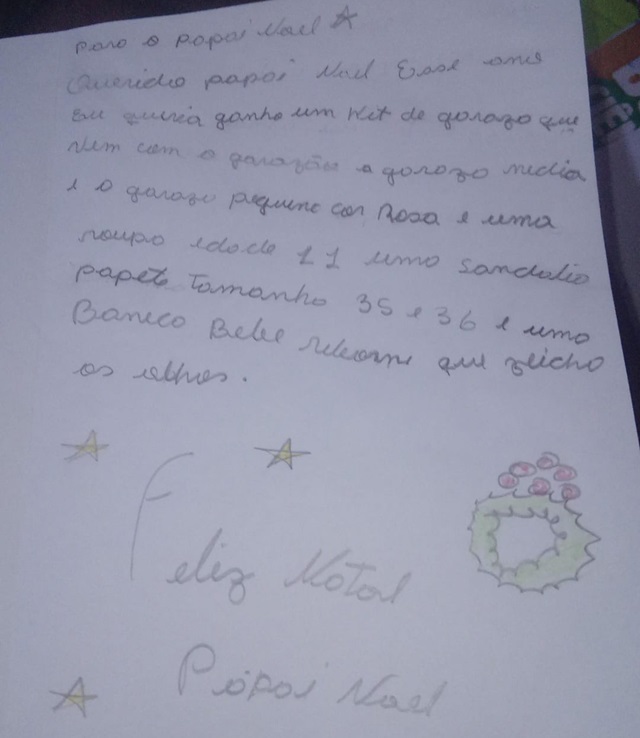 para o papai Noel
Querido papai Noel Esse anos
Eu queria ganha um Kit de garazo que
Vem com o garazão a garazo media
e o garazo pequeno cor Rosa e uma
roupa idade 11 uma sandalia
papete Tamanho 35 e 36 e uma
Boneca Bebe reborne que feicha
os olhos.
Feliz Natal
Papai Noel